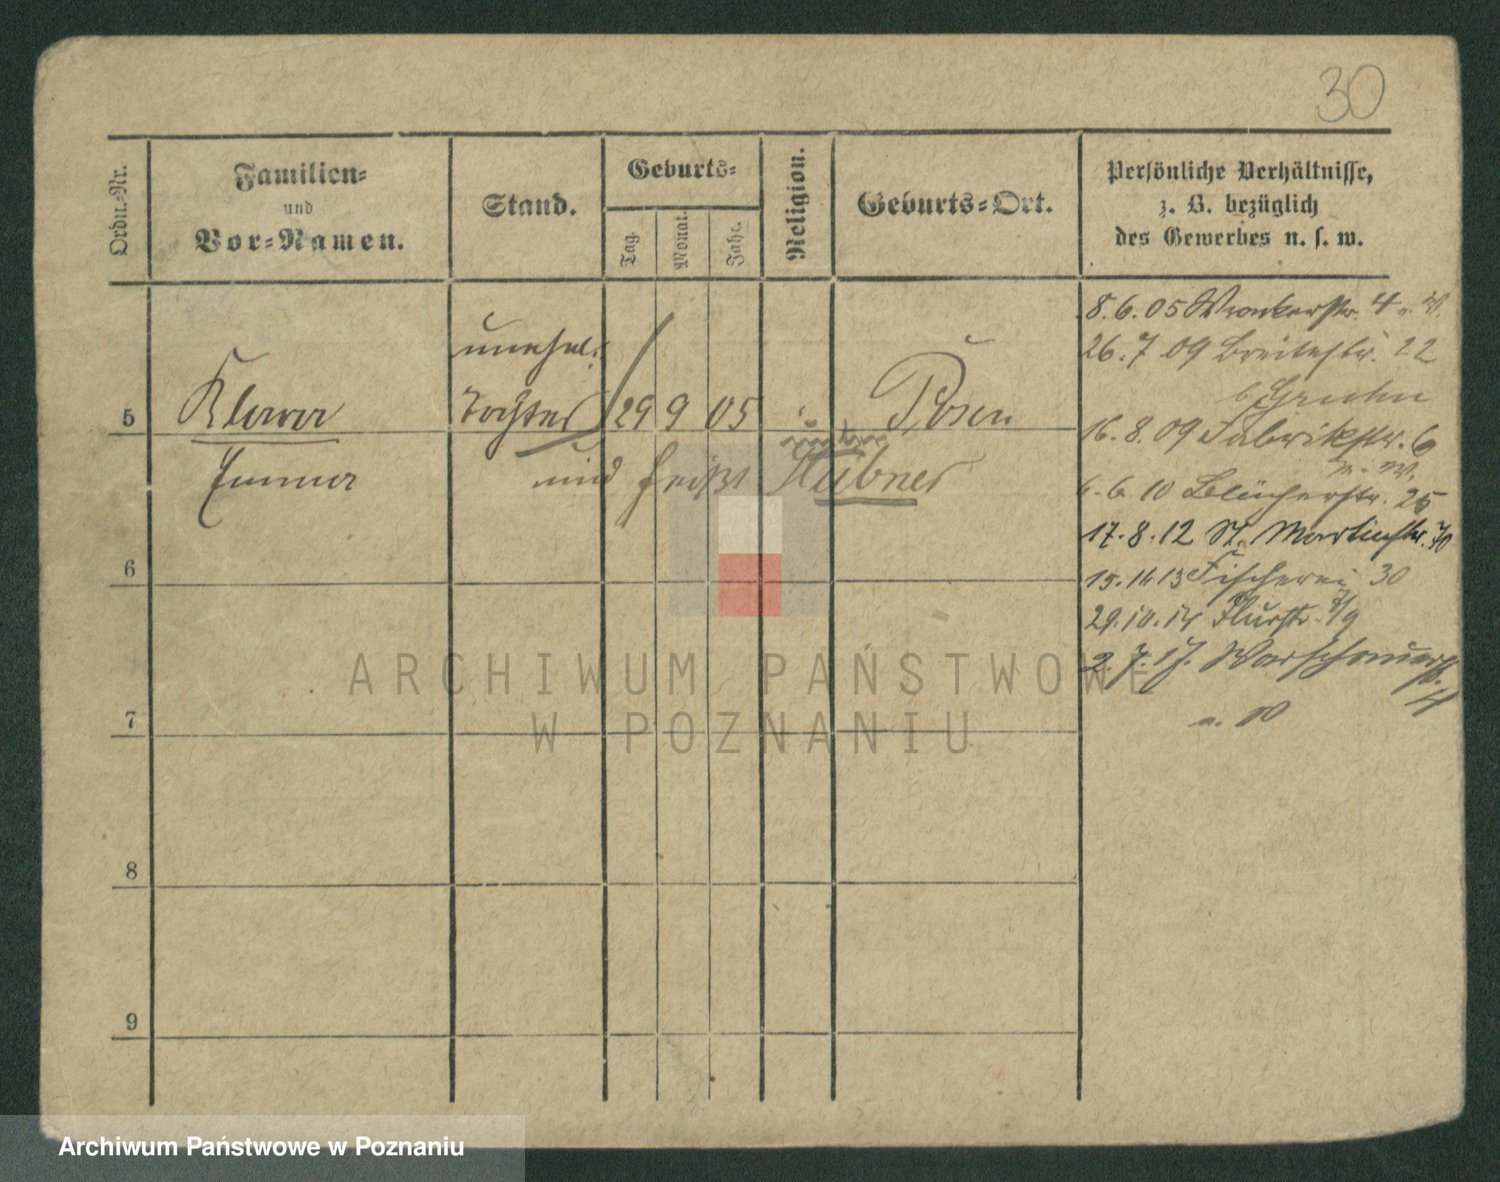 30
Ordn.-Nr.
Familien-
und
Vor-Namen.
Stand.
Geburts-
Tag.
Monat.
Jahr.
Religion.
Geburts-Ort.
Persönliche Verhältnisse,
z. B. bezüglich
des Gewerbes u. s. w.
unehel.
5 Tochter 29 9 05 Posen
Emma und heißt Hübner
6
7
8
9
8.6.05 Wronkerstr. 4
26.7 09 Breitestr. 22
16.8.09 Fabrikstr. 6
6.6 10 Blücherstr. 25
17.8.12 St. Martinstr. 70
Fischerei 30
29.10.14 Flurstr.
2.7.17. Warschauerstr.
ARCHIWUM PAŃSTWOWE
W POZNANIU
Archiwum Państwowe w Poznaniu